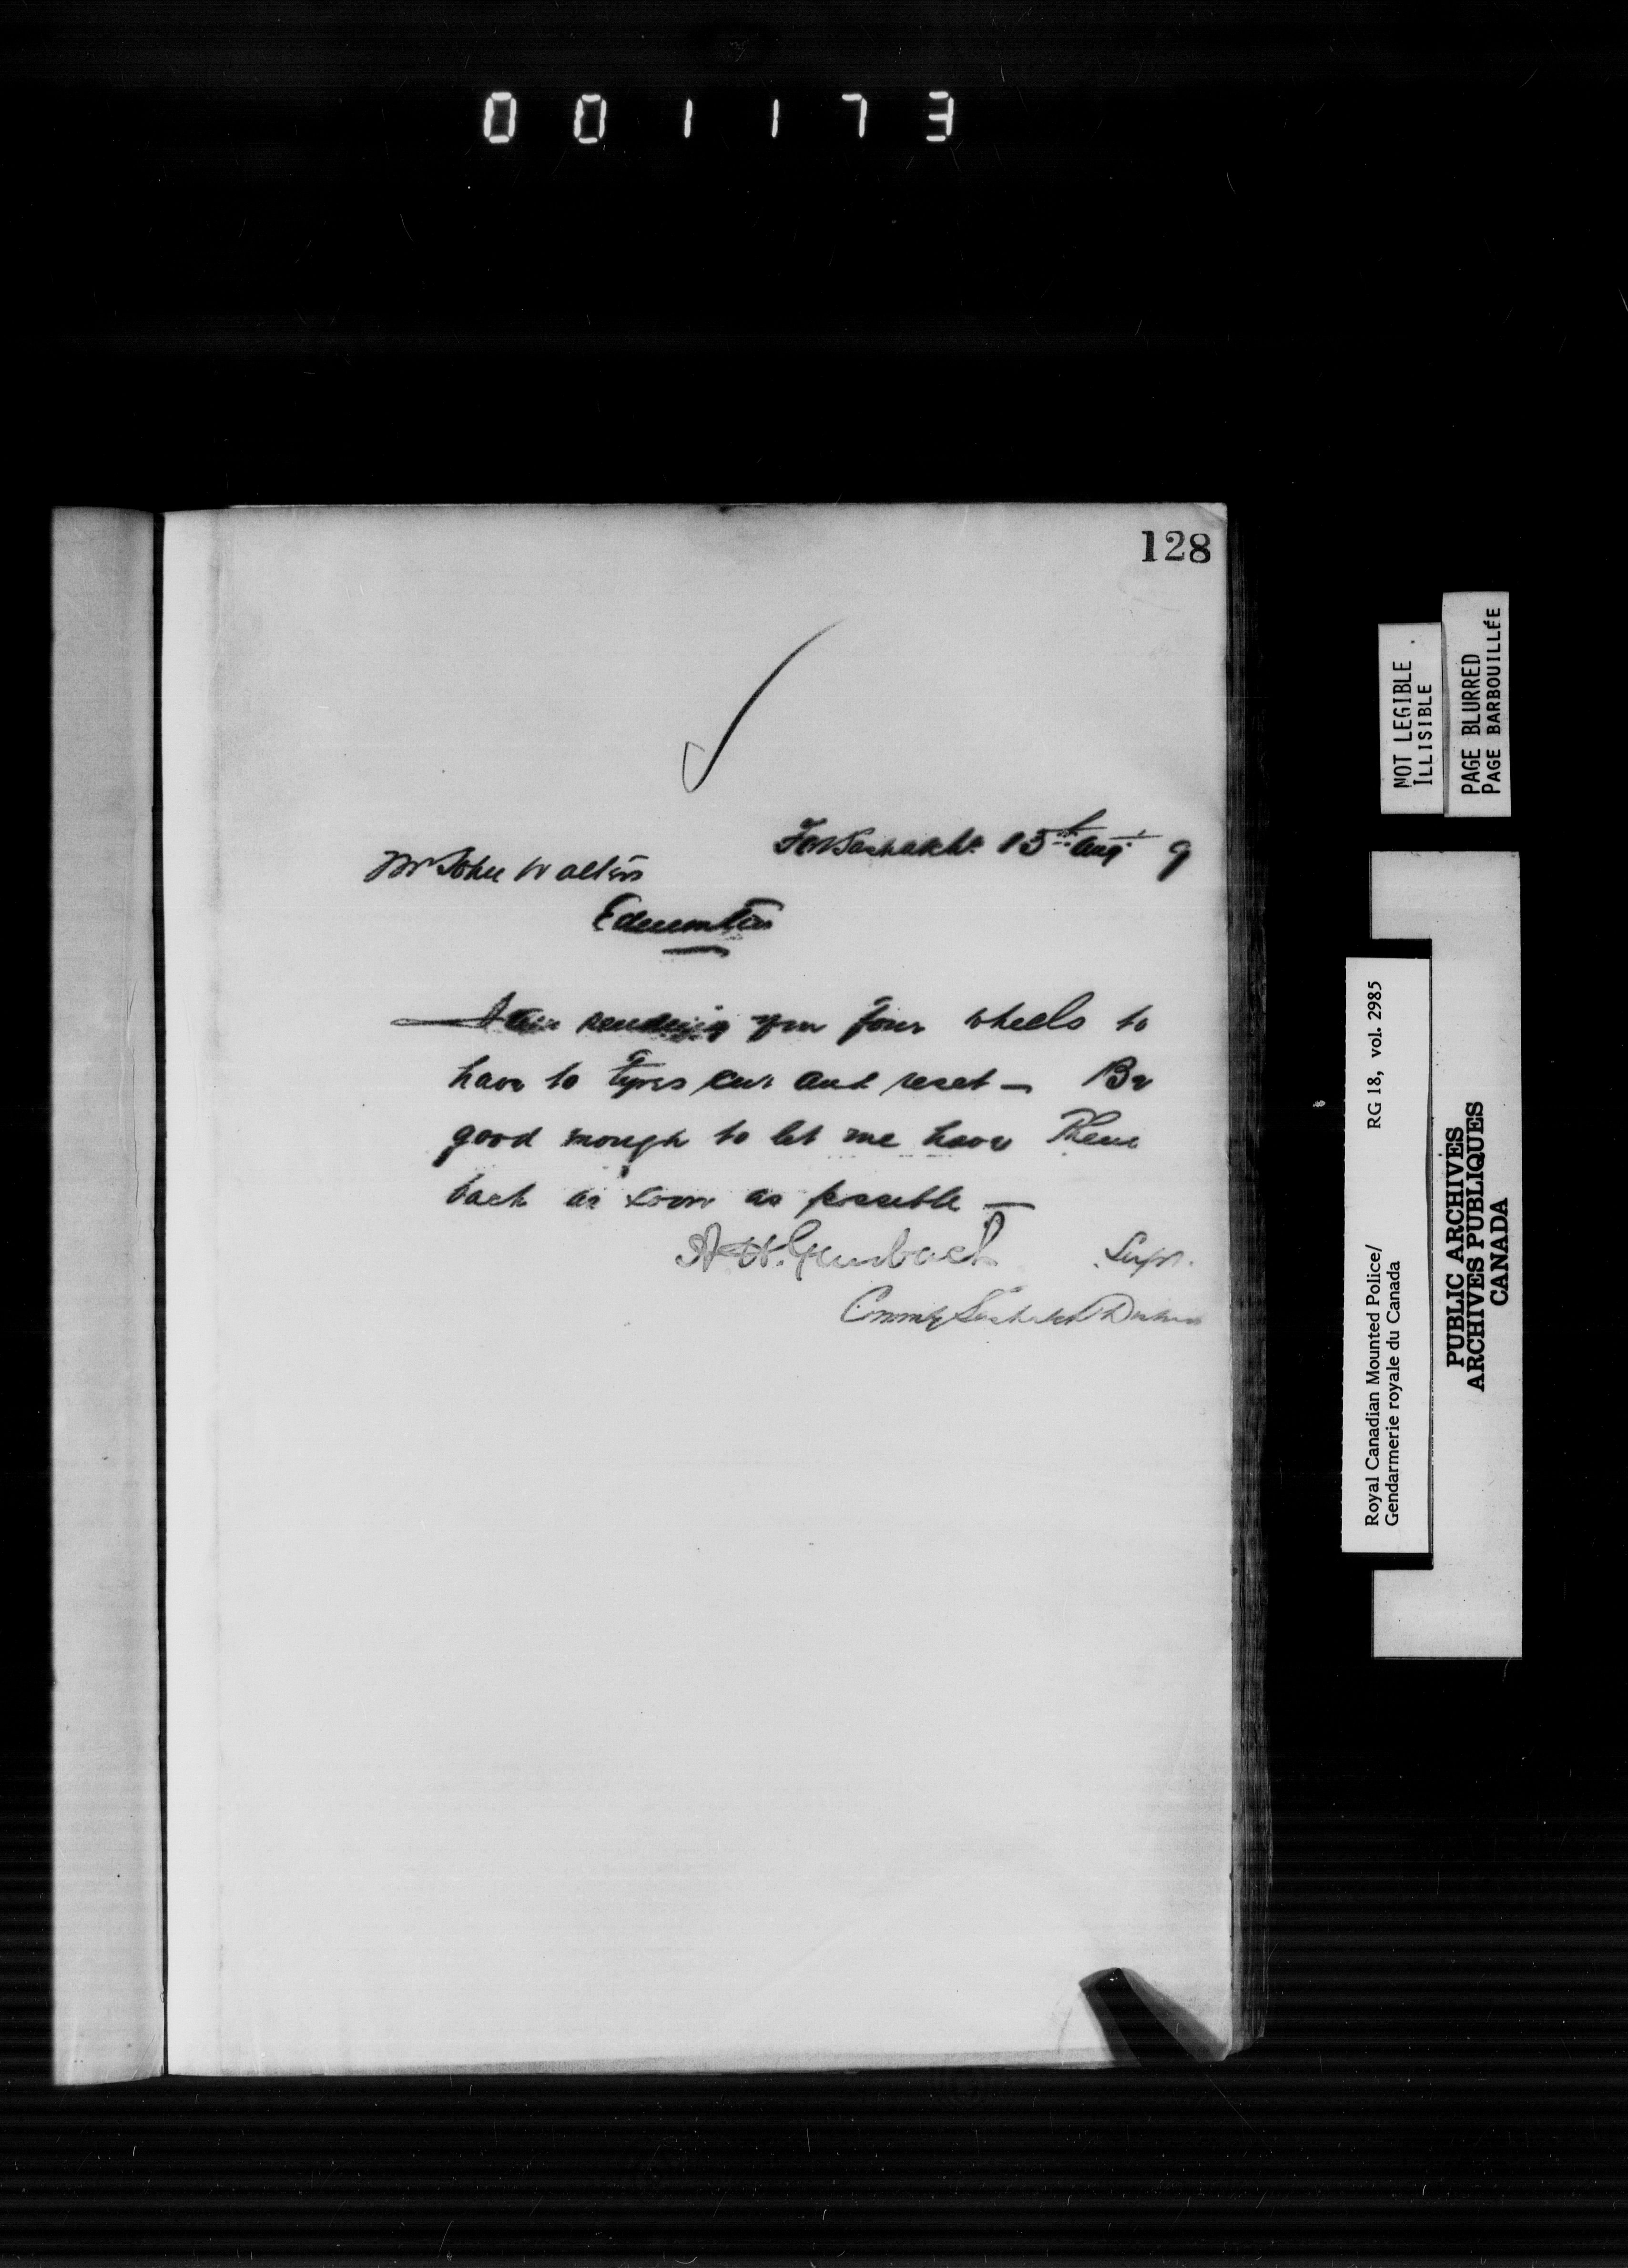 001173
128
Ft Saskatche 15th Augt 9
Mr John Walters
Edmonton
I am sending you four wheels to
have to tyres cut and reset — Be
good enough to let me have them
back as soon as possible —
A H. Griesbach Supt.
Commdg Saskatch District
NOT LEGIBLE
ILLISIBLE
PAGE BLURRED
PAGE BARBOUILLÉE
Royal Canadian Mounted Police/ RG 18, vol. 2985
Gendarmerie royale du Canada
PUBLIC ARCHIVES
ARCHIVES PUBLIQUES
CANADA